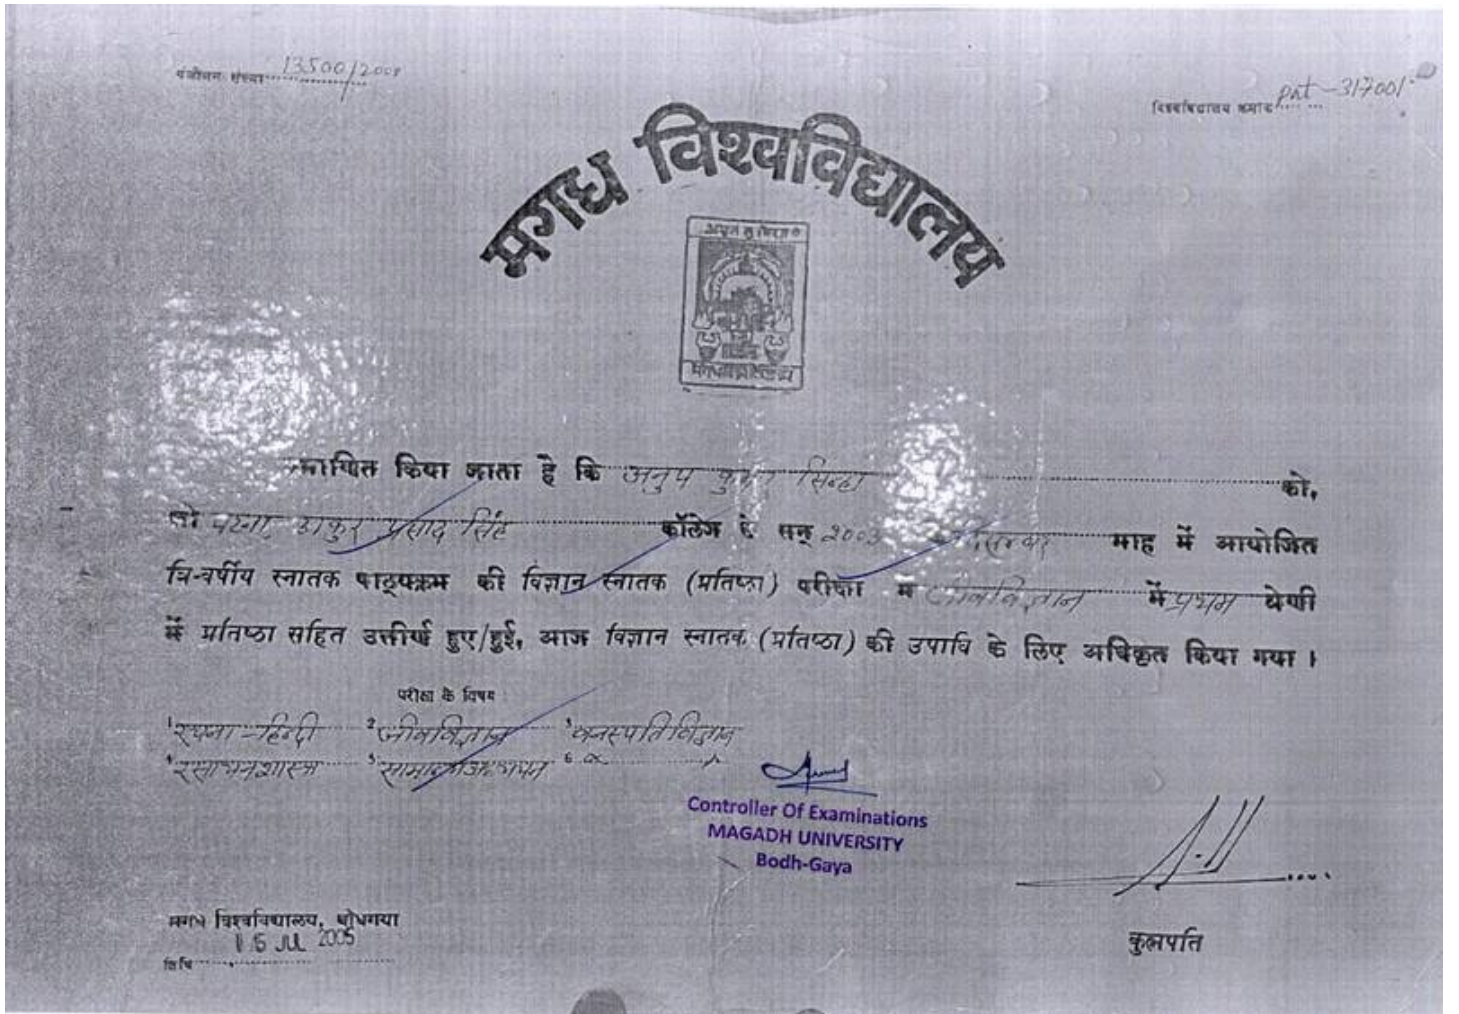 पंजीयन संख्या 13500/2001
विश्वविद्यालय क्रमांक Pat-317001
मगध विश्वविद्यालय
प्रमाणित किया जाता है कि अनुप कुमार सिन्हा को,
जो पटना, ठाकुर प्रसाद सिंह कॉलेज से सन् 2003 दिसम्बर माह में आयोजित
त्रि-वर्षीय स्नातक पाठ्यक्रम की विज्ञान स्नातक (प्रतिष्ठा) परीक्षा में जीवविज्ञान में प्रथम श्रेणी
में प्रतिष्ठा सहित उत्तीर्ण हुए/हुई, आज विज्ञान स्नातक (प्रतिष्ठा) की उपाधि के लिए अधिकृत किया गया ।
परीक्षा के विषय :
1 रचना-हिन्दी 2 जीवविज्ञान 3 वनस्पतिविज्ञान
4 रसायनशास्त्र 5 सामान्य अध्ययन 6
Controller Of Examinations
MAGADH UNIVERSITY
Bodh-Gaya
मगध विश्वविद्यालय, बोधगया
15 JUL 2005
तिथि
कुलपति